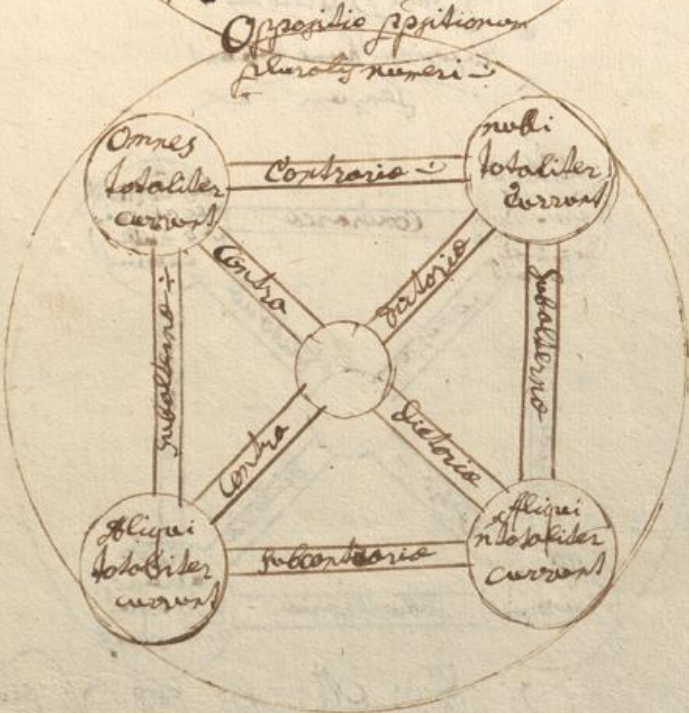 Oppositio ppsitionum
pluralis numeri
Omnes
totaliter
currunt
Contraria
nulli
totaliter
Currunt
Contra
dictoria
Subalterna
Subalterna
Contra
dictoria
Aliqui
totaliter
currunt
Subcontraria
Aliqui
n totaliter
currunt